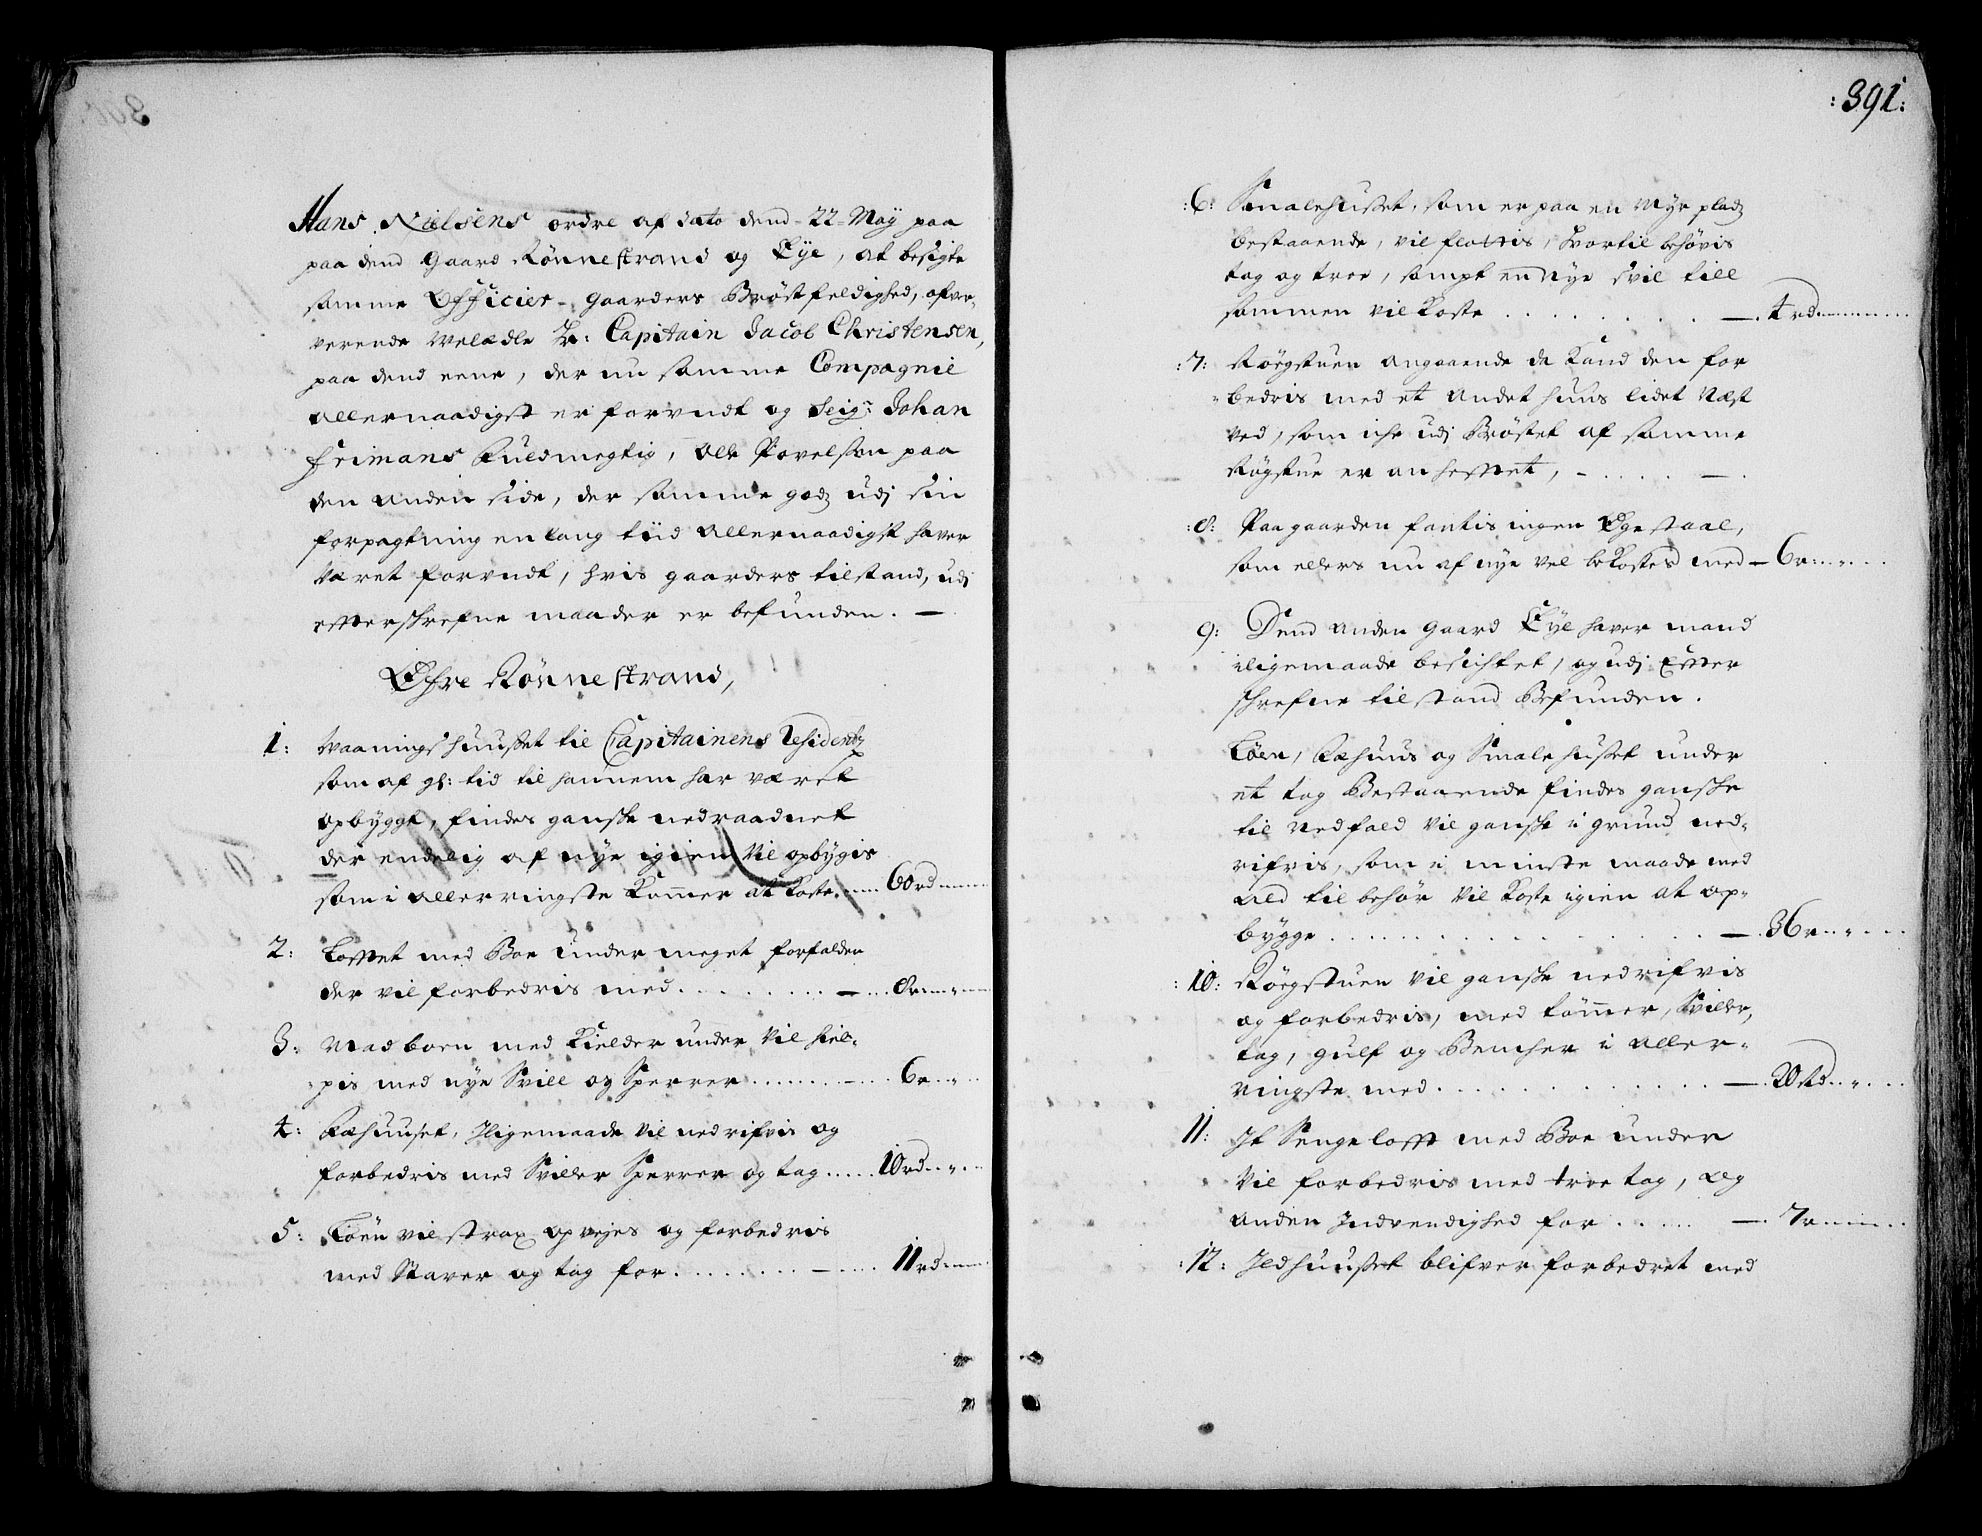 Hans Nielsens ordre af dato dend 22 Maÿ paa
paa dend Gaard Rönnestrand og Eÿe, at besigte
samme Officier-gaarders Bröstfeldighed, ofver-
verende Welædle Hr: Capitain Jacob Christensen,
paa dend eene, der nu samme Compagnie
allernaadigst er forundt og Seigr: Johan
Frimans Fuldmegtig, Ole Povelsön paa
den anden side, der samme godz udj sin
forpagtning en lang tiid allernaadigst haver
været forundt, hvis gaarders tilstand, udj
effterschrefne maader er befunden. —
Öfre Rönnestrand,
1: Waaningshuuset til Capitainens Residentz
som af gl: tid til hannem har været
opbÿggt, findes gansche nedraadnet
der endelig af nÿe igien vil opbÿgis
som i allerringste kommer at koste 60 rd
2: Lofftet med Boe under meget forfalden
der vil forbedris med 8 r
3: Madboen med Kielder under vil hiel-
pis med nÿe Svill og Sperrer 6 r
4: Fæhuuset, Iligemaade vil nedrifvis og
forbedris med Sviller Sperrer og tag 10 rd
5: Löen vil strax opvejes og forbedris
med Staver og tag for 11 rd
:391:
:6: Smalehuset, som er paa en Myr pladz
bestaaende, vil flottis, hvortil behövis
tag og træe, sampt en nÿe svil till
sammen vil koste 4 rd
:7: Rögstuen angaaende da kand den for
bedris med et andet huus lidet næst
ved, som iche udj Bröstet af samme
Rögstue er anhefftet,
:8: Paa gaarden fantis ingen Hgestaal,
som ellers nu af nÿe vel bekostes med 6 r
9: Dend anden Gaard Eÿe haver mand
iligemaade besichtet, og udj Effter
schrefne tilstand Befunden.
Löen, Fæhuus og Smalehuset under
et tag Bestaaende findes gansche
til nedfald vil gansche i grund ned-
rifvis, som i minste maade med
ald tilbehör vil koste igien at op-
bÿgge 36 r
:10: Rögstuen vil gansche nedrifvis
og forbedris, med tömmer, Sviller,
tag, gulf og Bencher i aller-
ringste med 20 Rd
11: It Sengelofft med Boe under
vil forbedris med træe tag, og
anden Indvendighed for 7 r
:12: Ildhuuset blifver forbedret med